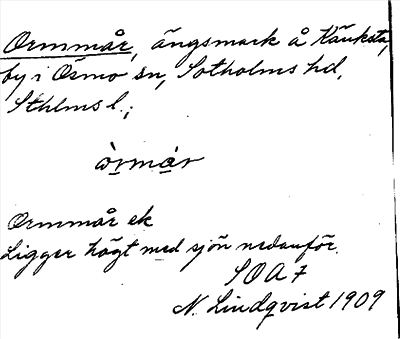 Ormmår, ängsmark å Känksta,
by i Ösmo sn, Sotholms hd,
Sthlms l.;
òrmár
Ormmår ek
Ligger högt med sjön nedanför.
SOA 7
N. Lindqvist 1909